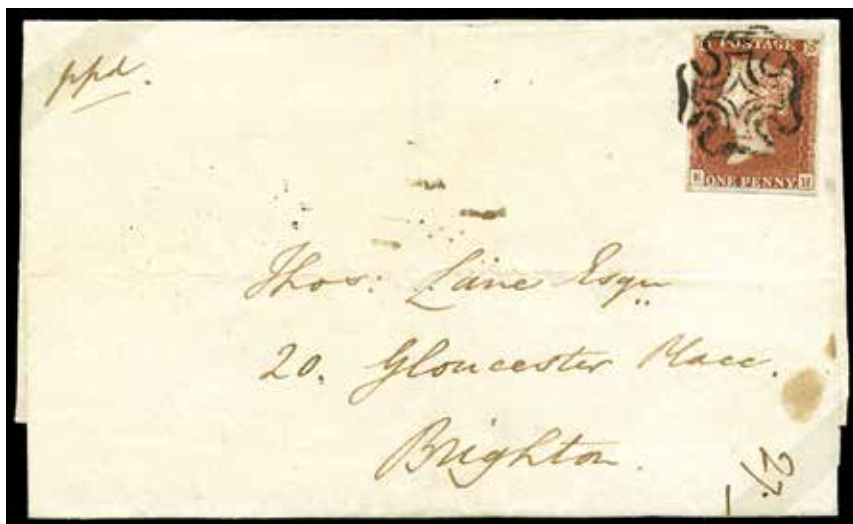 ppd.
POSTAGE
ONE PENNY
Thos: Lane Esqre
20. Gloucester Place.
Brighton.
27.